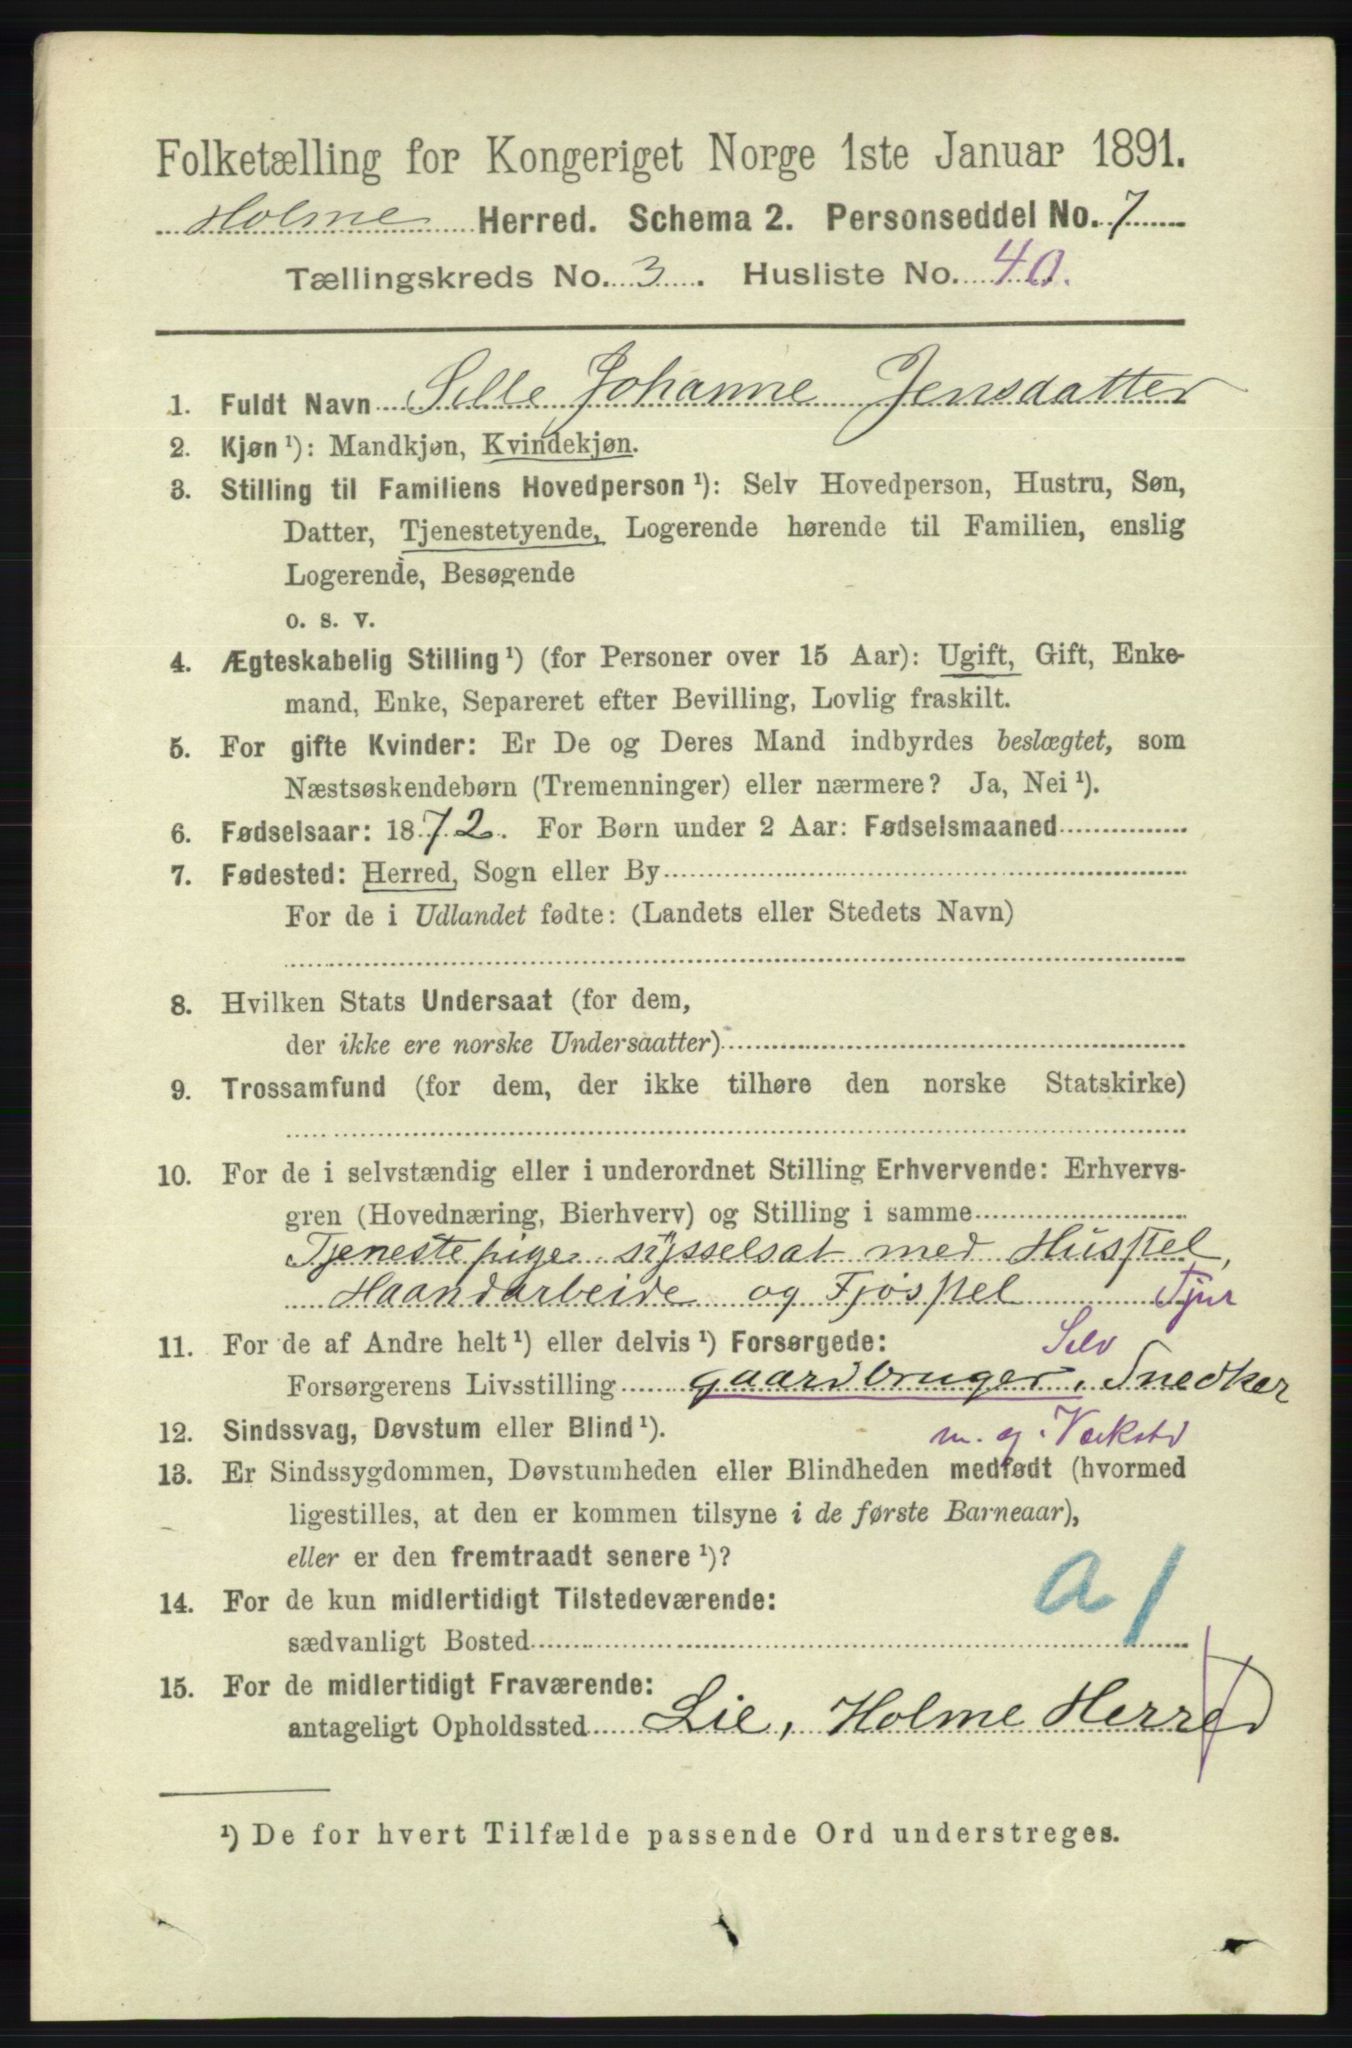 Folketælling for Kongeriget Norge 1ste Januar 1891.
Holme Herred. Schema 2. Personseddel No. 7
Tællingskreds No. 3. Husliste No. 40.
1. Fuldt Navn Sille Johanne Jensdatter
2. Kjøn ¹): Mandkjøn, Kvindekjøn.
3. Stilling til Familiens Hovedperson ¹): Selv Hovedperson, Hustru, Søn,
Datter, Tjenestetyende, Logerende hørende til Familien, enslig
Logerende, Besøgende
o. s. v.
4. Ægteskabelig Stilling ¹) (for Personer over 15 Aar): Ugift, Gift, Enke-
mand, Enke, Separeret efter Bevilling, Lovlig fraskilt.
5. For gifte Kvinder: Er De og Deres Mand indbyrdes beslægtet, som
Næstsøskendebørn (Tremenninger) eller nærmere? Ja, Nei ¹).
6. Fødselsaar: 1872. For Børn under 2 Aar: Fødselsmaaned
7. Fødested: Herred, Sogn eller By
For de i Udlandet fødte: (Landets eller Stedets Navn)
8. Hvilken Stats Undersaat (for dem,
der ikke ere norske Undersaatter)
9. Trossamfund (for dem, der ikke tilhøre den norske Statskirke)
10. For de i selvstændig eller i underordnet Stilling Erhvervende: Erhvervs-
gren (Hovednæring, Bierhverv) og Stilling i samme
Tjenestepige sysselsat med Husstel,
Haandarbeide og Fjøsstel Tjur
11. For de af Andre helt ¹) eller delvis ¹) Forsørgede: Selv
Forsørgerens Livsstilling gaardbruger, Snedker
12. Sindssvag, Døvstum eller Blind ¹). m. eg. Værkstd
13. Er Sindssygdommen, Døvstumheden eller Blindheden medfødt (hvormed
ligestilles, at den er kommen tilsyne i de første Barneaar),
eller er den fremtraadt senere ¹)?
14. For de kun midlertidigt Tilstedeværende: a 1
sædvanligt Bosted
15. For de midlertidigt Fraværende:
antageligt Opholdssted Lie, Holme Herred
¹) De for hvert Tilfælde passende Ord understreges.